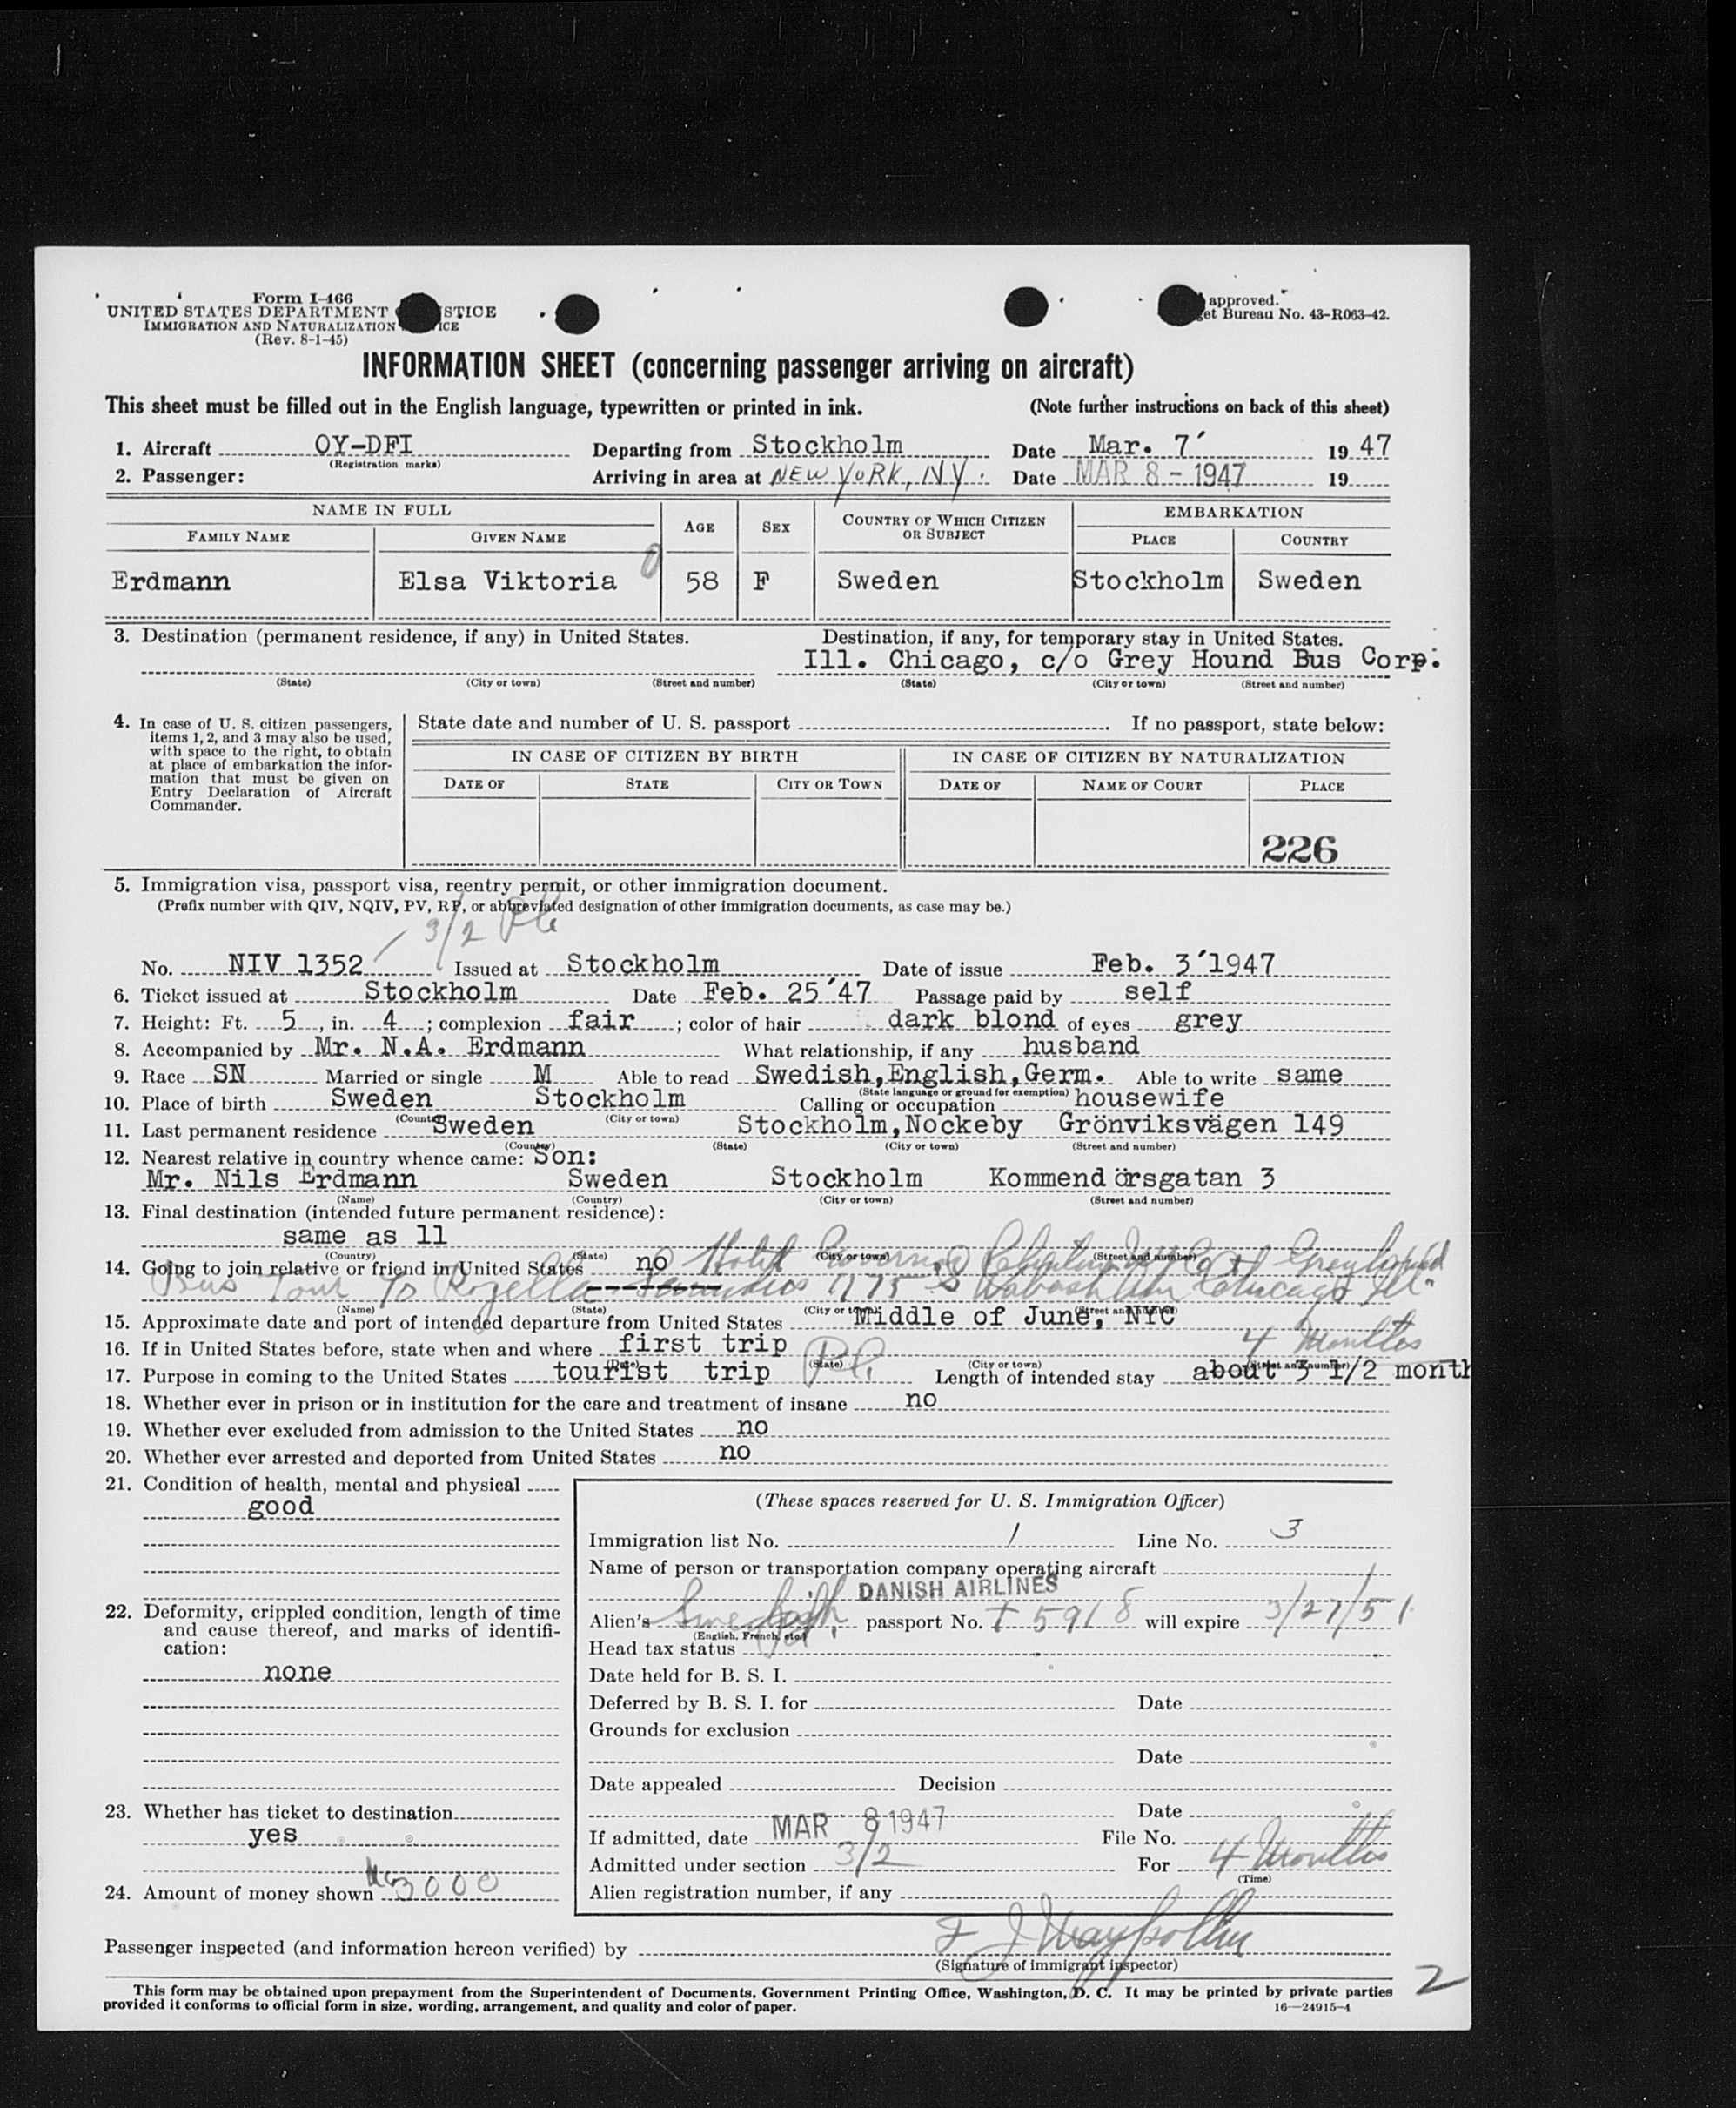 Form I-466
UNITED STATES DEPARTMENT STICE
IMMIGRATION AND NATURALIZATION ICE
(Rev. 8-1-45)
approved.
et Bureau No. 43-R063-42.
INFORMATION SHEET (concerning passenger arriving on aircraft)
This sheet must be filled out in the English language, typewritten or printed in ink. (Note further instructions on back of this sheet)
1. Aircraft OY-DFI Departing from Stockholm Date Mar. 7' 19 47
(Registration marks)
2. Passenger: Arriving in area at NEW YORK, NY. Date MAR 8 - 1947 19
NAME IN FULL AGE SEX COUNTRY OF WHICH CITIZEN OR SUBJECT EMBARKATION
FAMILY NAME GIVEN NAME PLACE COUNTRY
Erdmann Elsa Viktoria 58 F Sweden Stockholm Sweden
3. Destination (permanent residence, if any) in United States. Destination, if any, for temporary stay in United States.
Ill. Chicago, c/o Grey Hound Bus Corp.
(State) (City or town) (Street and number) (State) (City or town) (Street and number)
4. In case of U. S. citizen passengers, items 1, 2, and 3 may also be used, with space to the right, to obtain at place of embarkation the information that must be given on Entry Declaration of Aircraft Commander.
State date and number of U. S. passport If no passport, state below:
IN CASE OF CITIZEN BY BIRTH IN CASE OF CITIZEN BY NATURALIZATION
DATE OF STATE CITY OR TOWN DATE OF NAME OF COURT PLACE
226
5. Immigration visa, passport visa, reentry permit, or other immigration document.
(Prefix number with QIV, NQIV, PV, RP, or abbreviated designation of other immigration documents, as case may be.)
3/2
No. NIV 1352 Issued at Stockholm Date of issue Feb. 3'1947
6. Ticket issued at Stockholm Date Feb. 25'47 Passage paid by self
7. Height: Ft. 5, in. 4; complexion fair; color of hair dark blond of eyes grey
8. Accompanied by Mr. N.A. Erdmann What relationship, if any husband
9. Race SN Married or single M Able to read Swedish,English,Germ. Able to write same
(State language or ground for exemption)
10. Place of birth Sweden Stockholm Calling or occupation housewife
(Country) (City or town)
11. Last permanent residence Sweden Stockholm,Nockeby Grönviksvägen 149
(Country) (State) (City or town) (Street and number)
12. Nearest relative in country whence came: Son:
Mr. Nils Erdmann Sweden Stockholm Kommendörsgatan 3
(Name) (Country) (City or town) (Street and number)
13. Final destination (intended future permanent residence):
same as 11
(Country) (State) (City or town) (Street and number)
14. Going to join relative or friend in United States no Hotel Governor Clinton NYC Greyhound
Bus Tour % Rozella 1175 S Wabash Chicago Ill
(Name) (State) (City or town) (Street and number)
15. Approximate date and port of intended departure from United States Middle of June, NYC
16. If in United States before, state when and where first trip 4 Months
(Date) (State) (City or town) (Street and number)
17. Purpose in coming to the United States tourist trip Length of intended stay about 3 1/2 month
18. Whether ever in prison or in institution for the care and treatment of insane no
19. Whether ever excluded from admission to the United States no
20. Whether ever arrested and deported from United States no
21. Condition of health, mental and physical
good
22. Deformity, crippled condition, length of time and cause thereof, and marks of identification:
none
23. Whether has ticket to destination
yes
24. Amount of money shown 3000
(These spaces reserved for U. S. Immigration Officer)
Immigration list No. 1 Line No. 3
Name of person or transportation company operating aircraft
DANISH AIRLINES
Alien's Swedish passport No. T 5918 will expire 3/27/51
(English, French, etc.)
Head tax status
Date held for B. S. I.
Deferred by B. S. I. for Date
Grounds for exclusion
Date
Date appealed Decision
Date
If admitted, date MAR 8 1947 File No.
Admitted under section 3/2 For 4 Months
(Time)
Alien registration number, if any
Passenger inspected (and information hereon verified) by
(Signature of immigrant inspector)
2
This form may be obtained upon prepayment from the Superintendent of Documents, Government Printing Office, Washington, D. C. It may be printed by private parties
provided it conforms to official form in size, wording, arrangement, and quality and color of paper. 16—24915-4